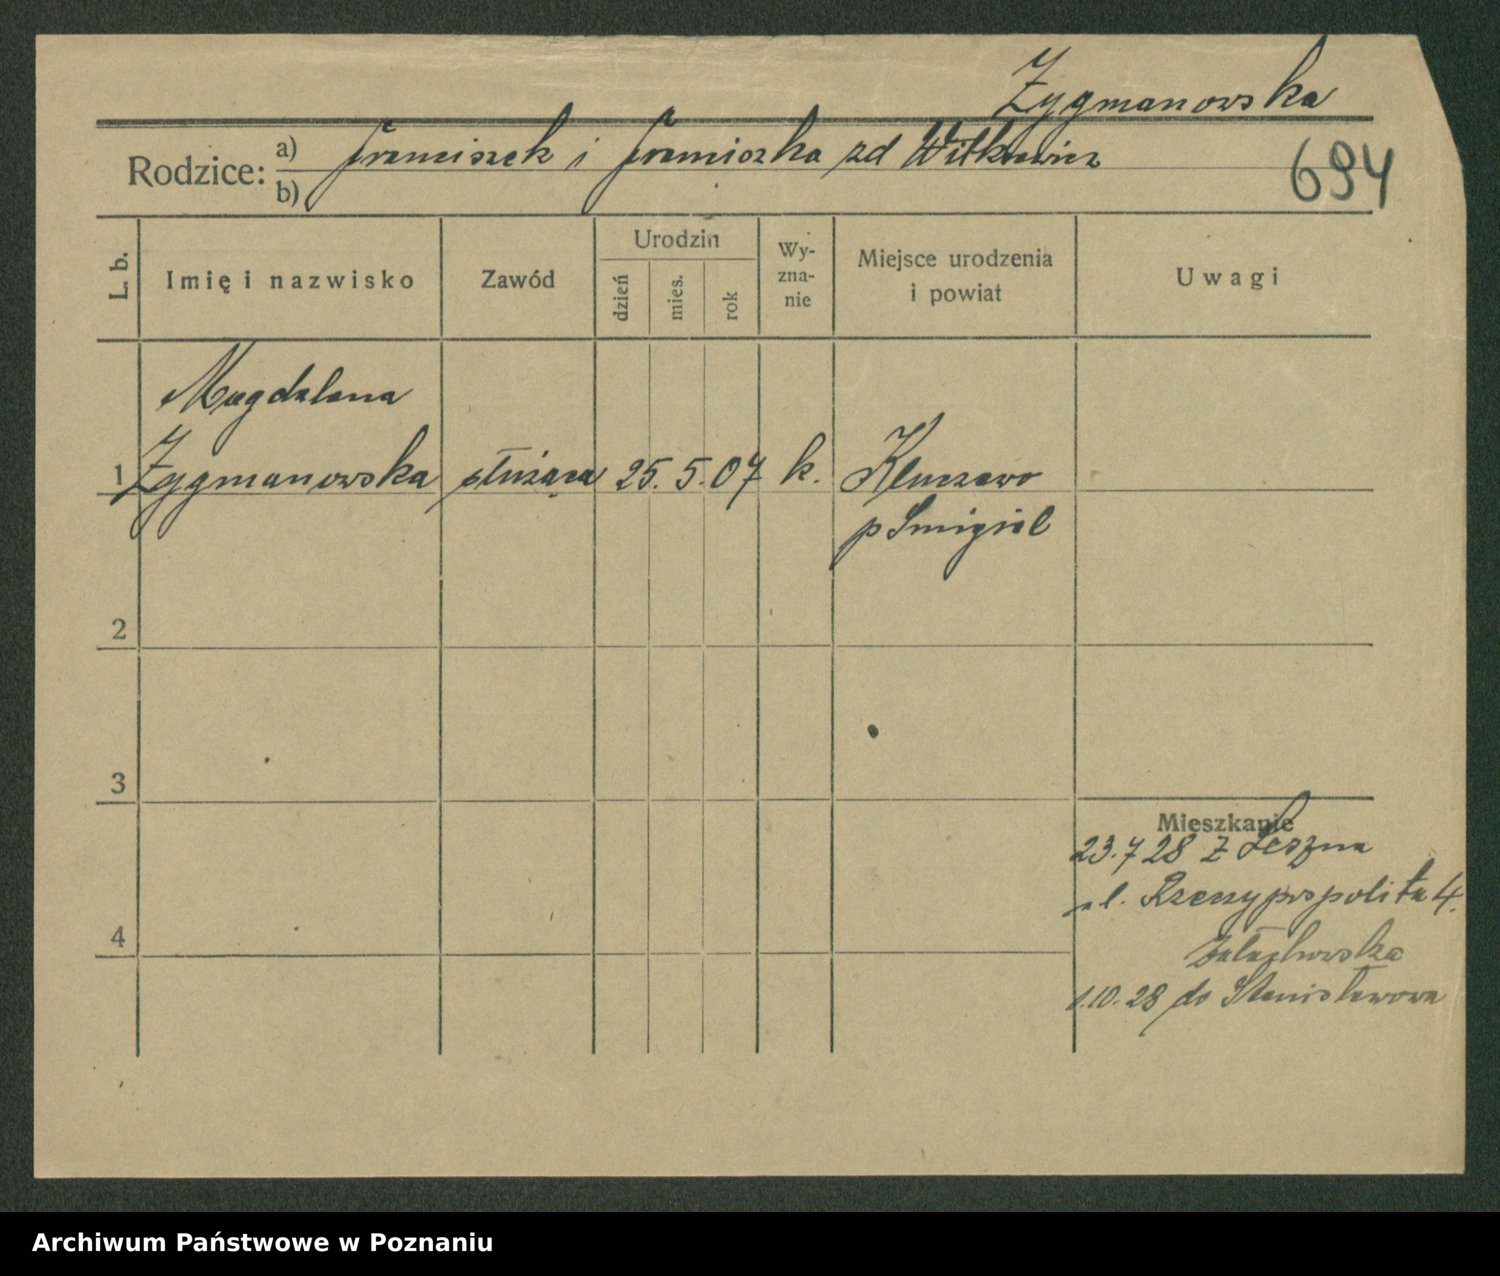 Zygmanowska
Rodzice: a) Franciszek i Franciszka zd Witkowicz
b)
694
L. b.
Imię i nazwisko
Zawód
Urodzin
dzień
mies.
rok
Wy-
zna-
nie
Miejsce urodzenia
i powiat
Uwagi
Magdalena
1 Zygmanowska służąca 25. 5. 07 k. Kluczewo
p Smigiel
2
3
Mieszkanie
23. 7 28 z Leszna
ul. Rzeczypospolita 4.
4
1.10.28 do Stanisławowa
Archiwum Państwowe w Poznaniu